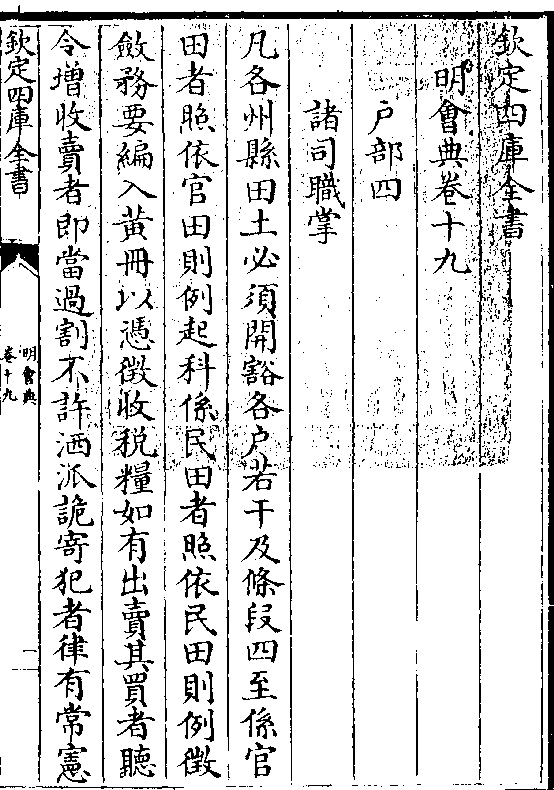 欽定四庫全書
明會典卷十九
户部四
諸司職掌
凡各州縣田土必須開豁各户若干及條段四至係官
田者照依官田則例起科係民田者照依民田則例徵
斂務要編入黄冊以憑徵收税糧如有出賣其買者聽
令增收賣者即當過割不許洒派詭寄犯者律有常憲
欽定四庫全書
明會典
卷十九
一